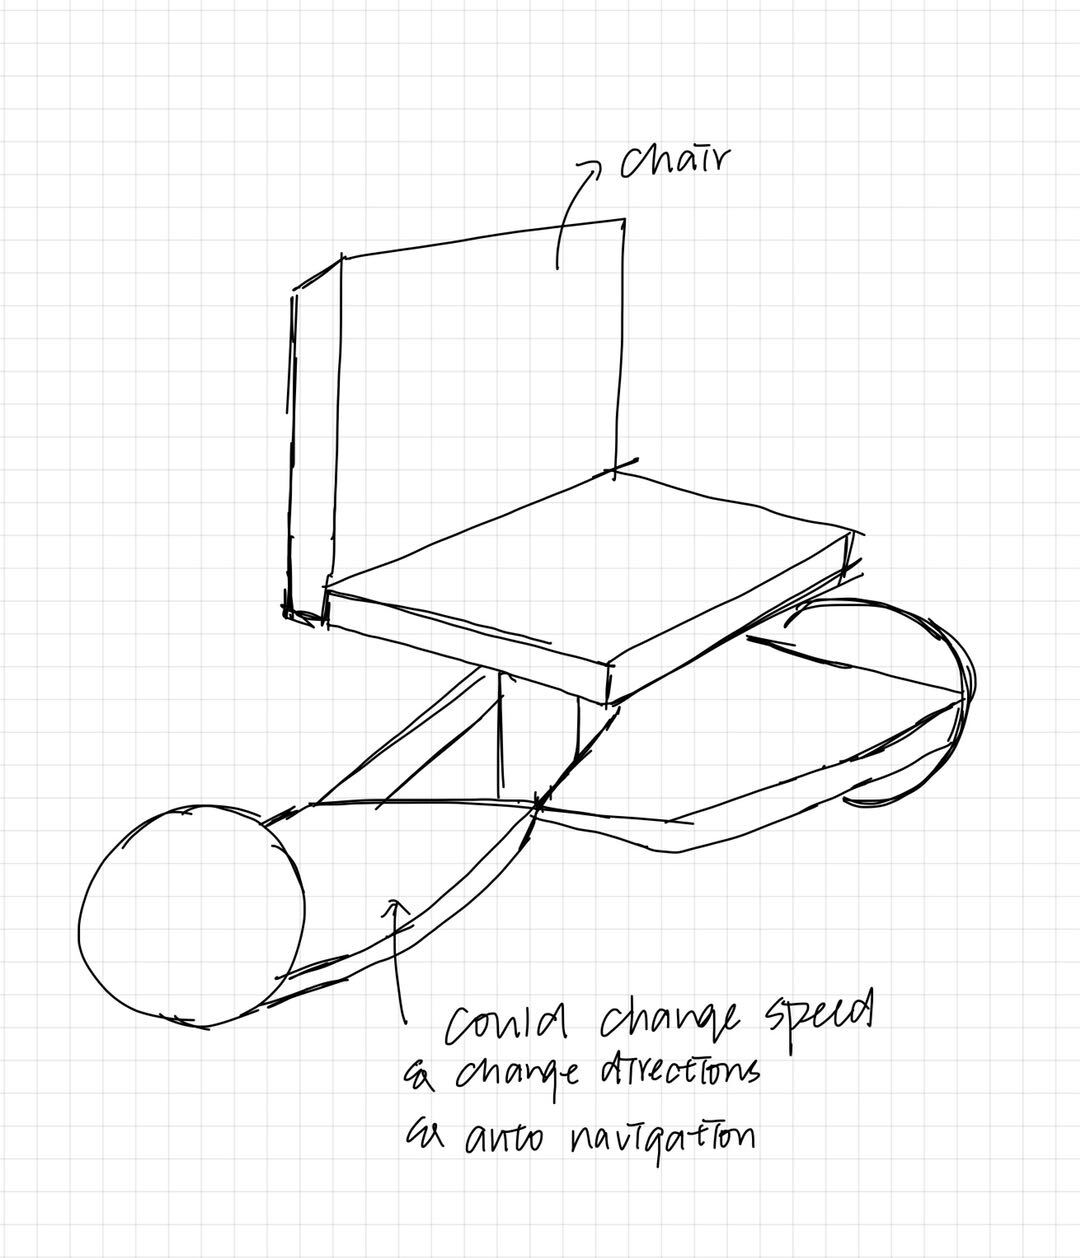 chair
could change speed
& change directions
& auto navigation